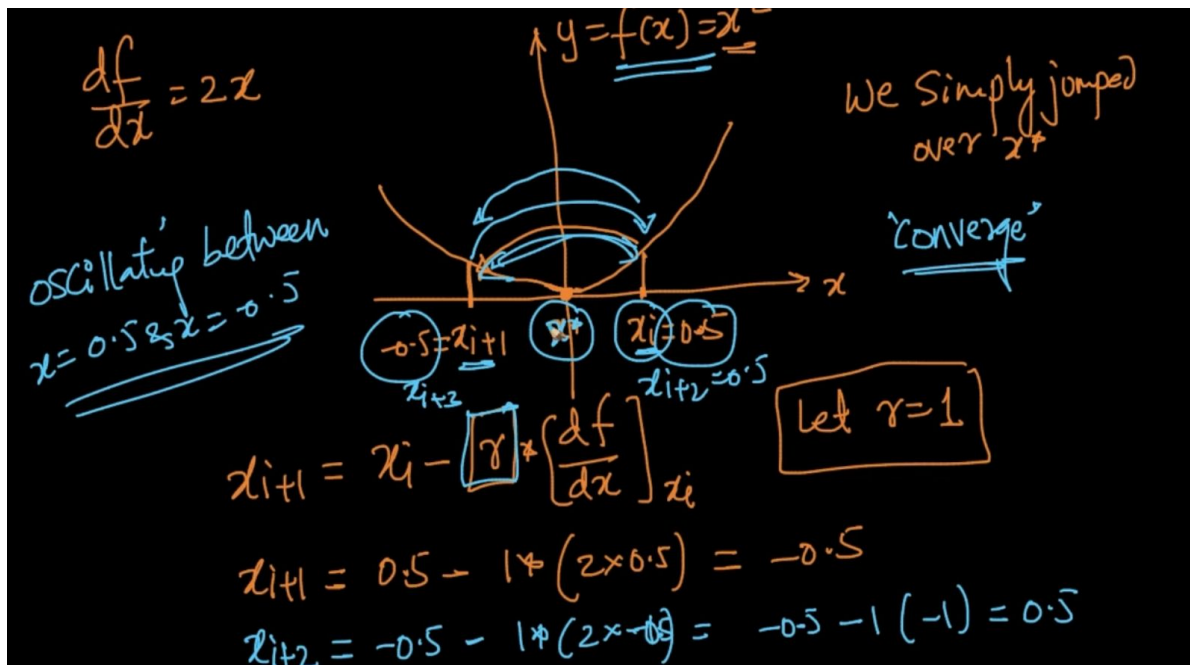 y = f(x) = x²
df/dx = 2x
We Simply jumped
over x*
oscillating between
x = 0.5 & x = -0.5
"converge"
x
-0.5 = xi+1
x*
xi = 0.5
xi+3
xi+2 = 0.5
Let r = 1
xi+1 = xi - r * [df/dx]xi
xi+1 = 0.5 - 1 * (2×0.5) = -0.5
xi+2 = -0.5 - 1 * (2×-0.5) = -0.5 - 1(-1) = 0.5